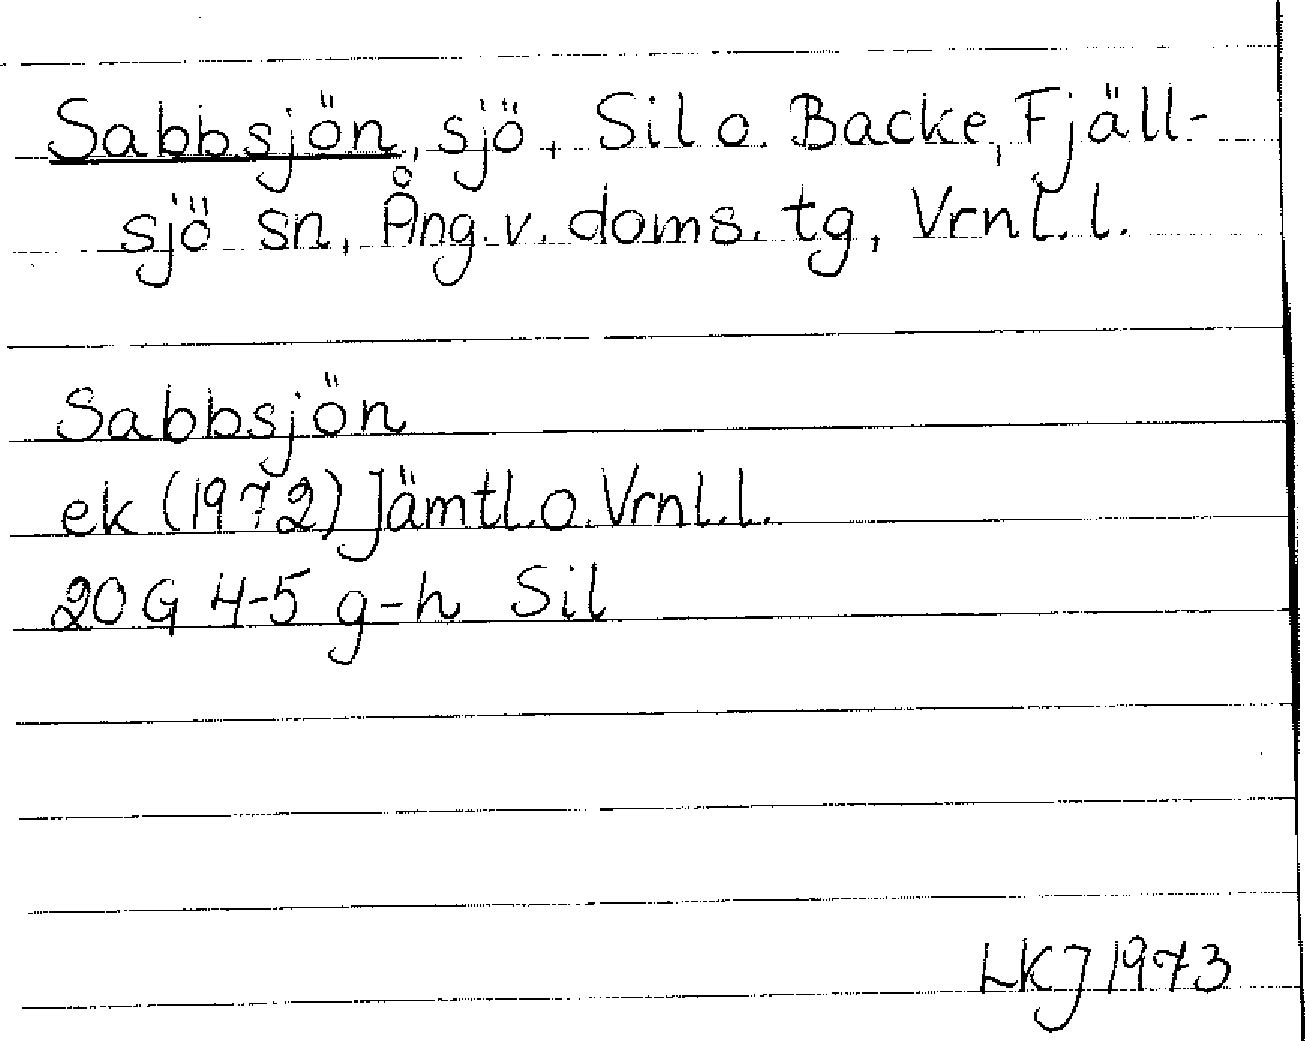 Sabbsjön, sjö, Sil o. Backe, Fjäll-
sjö sn, Ång. v. doms. tg, Vrnl. l.
Sabbsjön
ek (1972) Jämtl. o. Vrnl. l.
20 G 4-5 g-h Sil
LKJ 1973